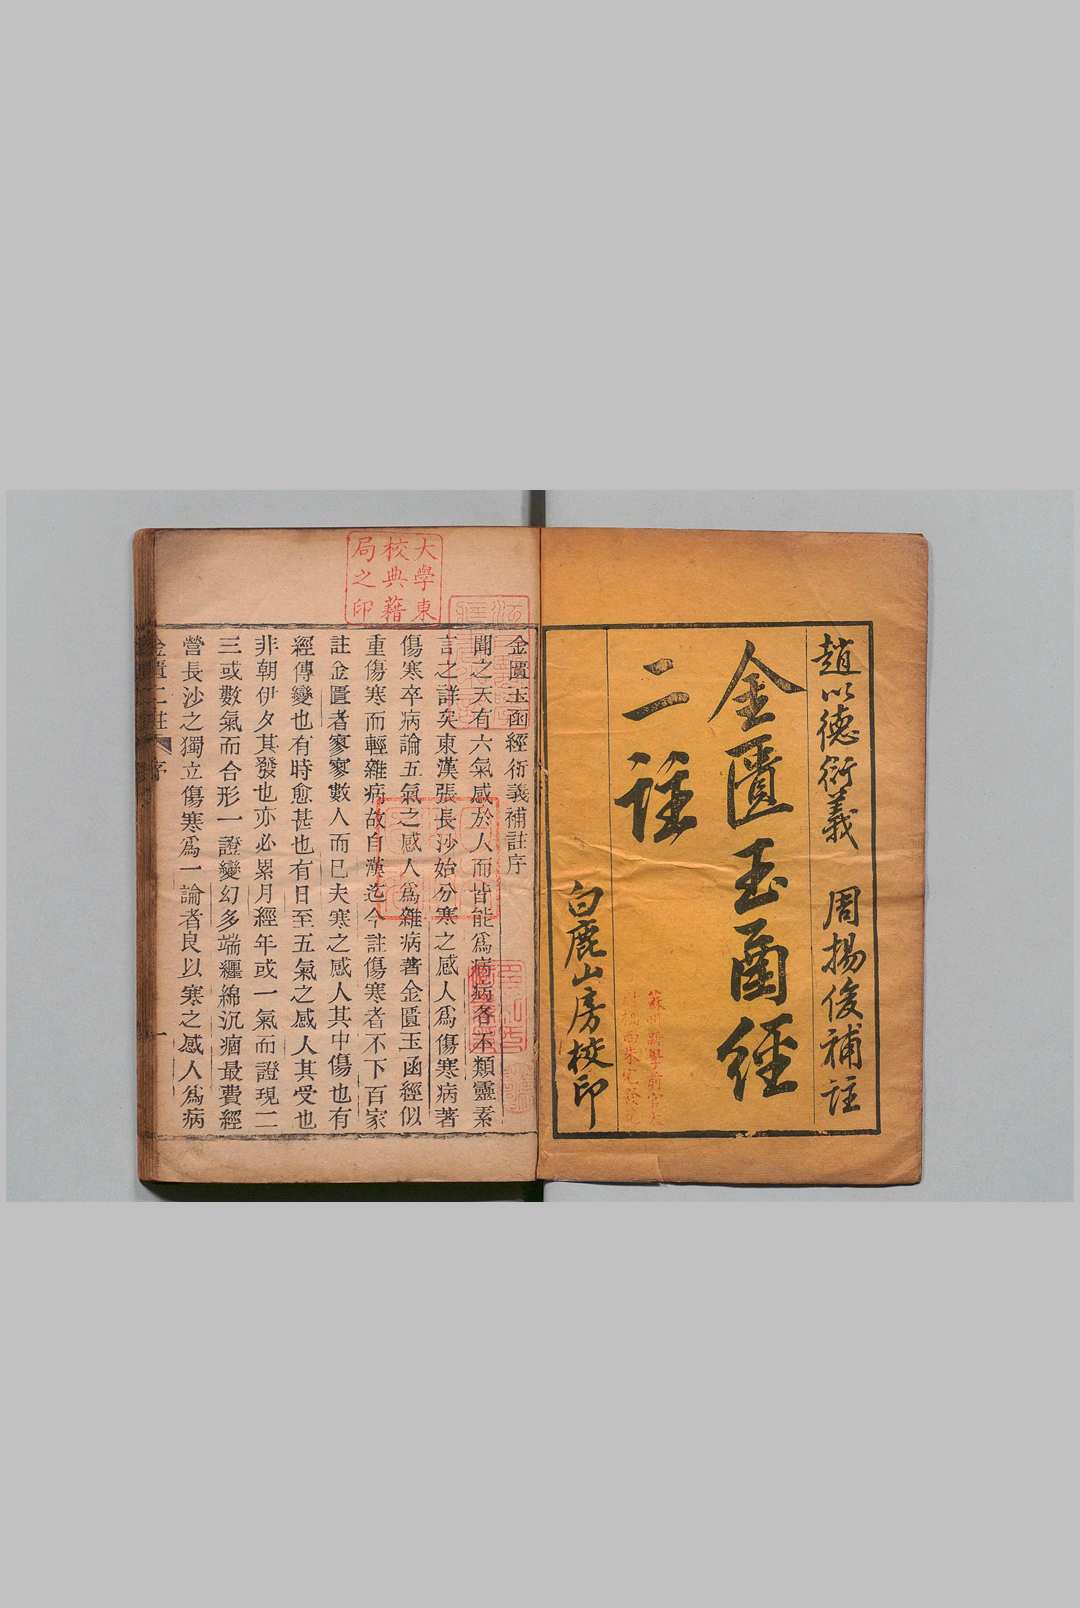 趙以德衍義　周揚俊補註
金匱玉函經
二註
白鹿山房校印
大學東
校典藉
局之印
金匱玉函經衍義補註序
聞之天有六氣感於人而皆能爲瘡病各不類靈素
言之詳矣東漢張長沙始分寒之感人爲傷寒病著
傷寒卒病論五氣之感人爲雜病著金匱玉函經似
重傷寒而輕雜病故自漢迄今註傷寒者不下百家
註金匱者寥寥數人而已夫寒之感人其中傷也有
經傳變也有時愈甚也有日至五氣之感人其受也
非朝伊夕其發也亦必累月經年或一氣而證現二
三或數氣而合形一證變幻多端纒綿沉痼最費經
營長沙之獨立傷寒爲一論者良以寒之感人爲病
金匱二註　序　一